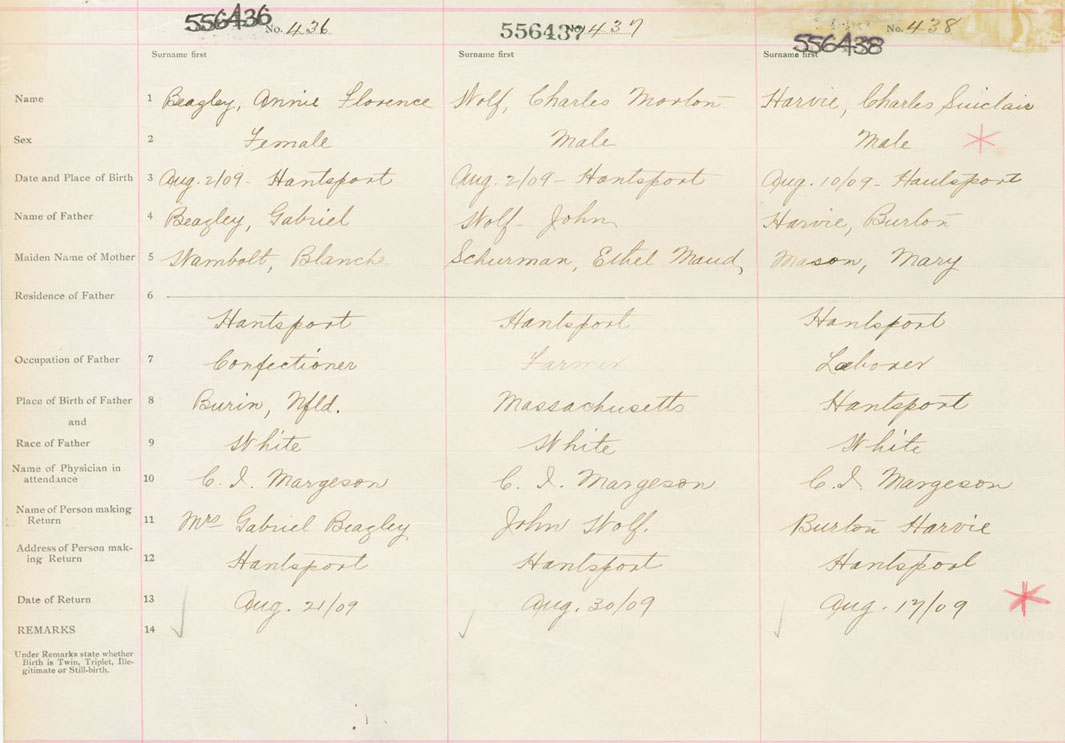 556436 No. 436 556437 No. 437 556438 No. 438
Surname first Surname first Surname first
Name 1 Beagley, Annie Florence Wolf, Charles Morton Harvie, Charles Sinclair
Sex 2 Female Male Male
Date and Place of Birth 3 Aug. 2/09 - Hantsport Aug. 2/09 - Hantsport Aug. 10/09 - Hantsport
Name of Father 4 Beagley, Gabriel Wolf - John Harvie, Burton
Maiden Name of Mother 5 Wambolt, Blanche Schurman, Ethel Maud Mason, Mary
Residence of Father 6
Hantsport Hantsport Hantsport
Occupation of Father 7 Confectioner Farmer Laborer
Place of Birth of Father 8 Burin, Nfld. Massachusetts Hantsport
and
Race of Father 9 White White White
Name of Physician in
attendance 10 C. I. Margeson C. I. Margeson C. I. Margeson
Name of Person making
Return 11 Mrs Gabriel Beagley John Wolf. Burton Harvie
Address of Person mak-
ing Return 12 Hantsport Hantsport Hantsport
Date of Return 13 Aug. 21/09 Aug. 30/09 Aug. 17/09
REMARKS 14
Under Remarks state whether
Birth is Twin, Triplet, Ille-
gitimate or Still-birth.